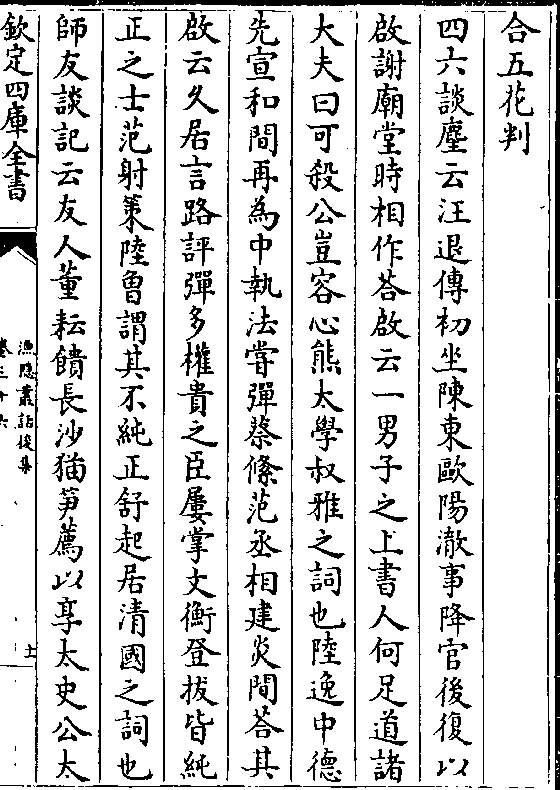 合五花判
四六談麈云汪退傅初坐陳東歐陽澈事降官後復以
啟謝廟堂時相作荅啟云一男子之上書人何足道諸
大夫曰可殺公豈容心熊太學叔雅之詞也陸逸中德
先宣和間再為中執法嘗彈蔡絛范丞相建炎間荅其
啟云久居言路評彈多權貴之臣屢掌文衡登拔皆純
正之士范射策陸魯謂其不純正舒起居清國之詞也
師友談記云友人董耘饋長沙猫笋薦以享太史公太
欽定四庫全書
漁隱叢話後集
卷三十六
十